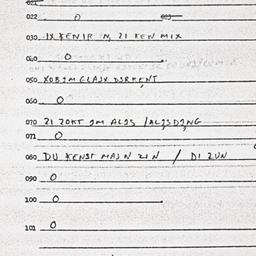 022. 0
030. IX KENIR N, ZI KEN MIX
040. 0
050. XOB2M GLAJX D2RKENT
060. 0
070 ZI ZOKT 2M AL2S / AL2SD2NG
071 0
080. DU KENST MAJN ZIN / DI ZUN
090 0
100 0
101 0